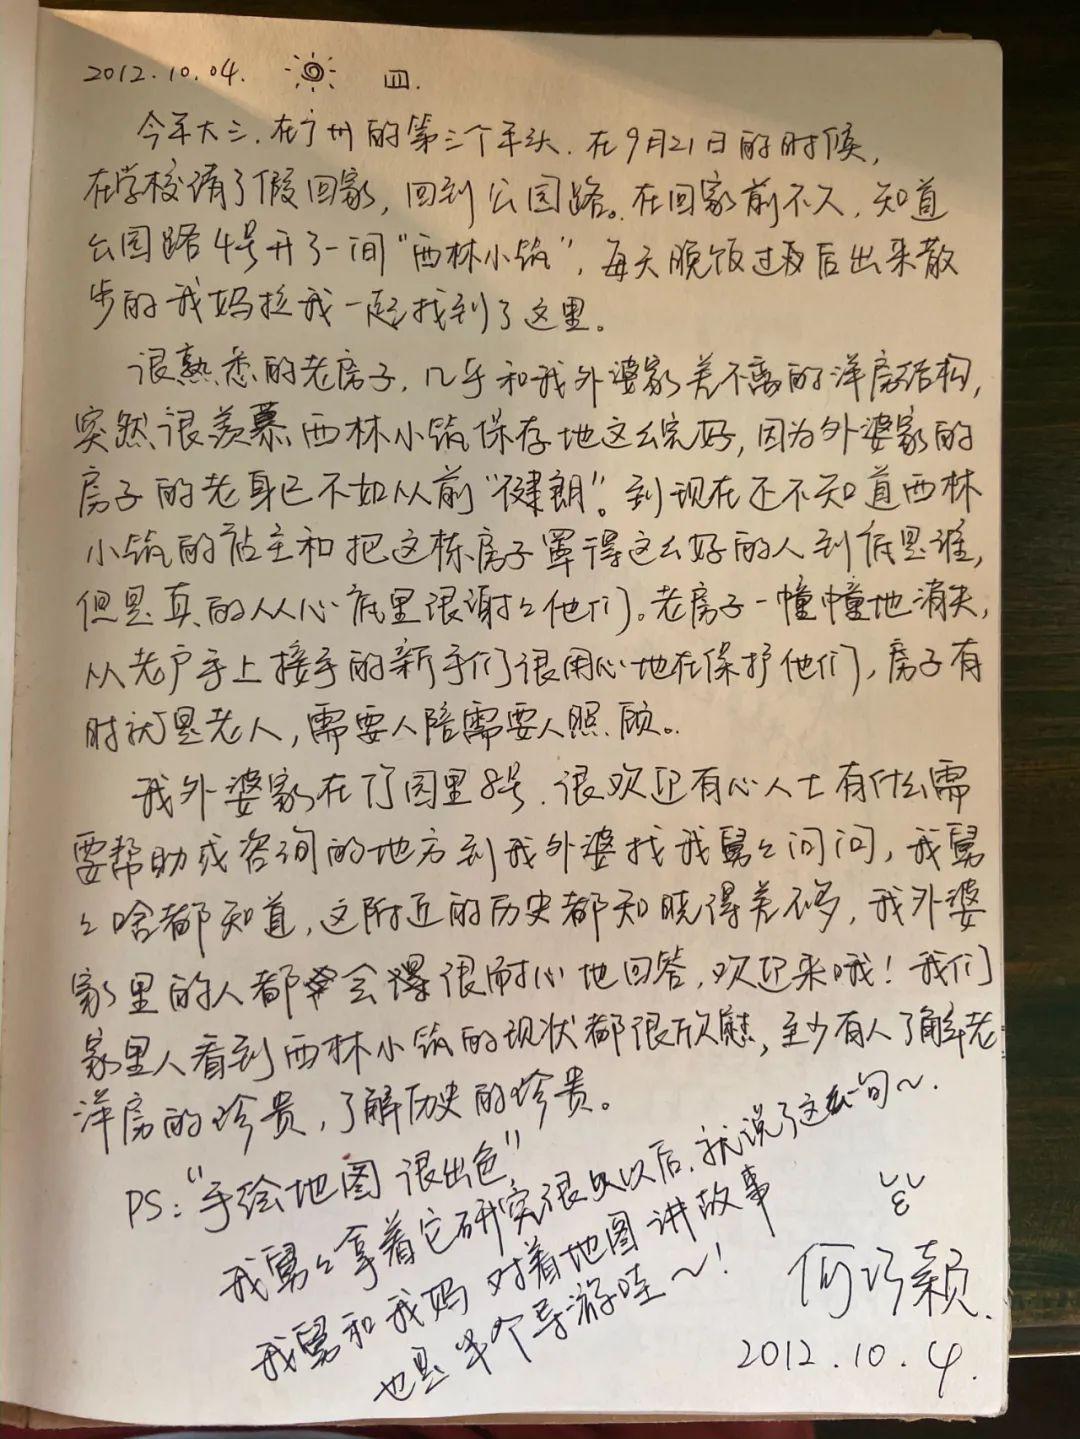 2012.10.04. 四.
今年大三.在广州的第三个年头.在9月21日的时候,
在学校请了假回家,回到公园路。在回家前不久,知道
公园路4号开了一间“西林小筑”,每天晚饭过后出来散
步的我妈拉我一起找到了这里。
很熟悉的老房子,几乎和我外婆家差不离的洋房结构,
突然很羡慕西林小筑保存地这么完好,因为外婆家的
房子的老身已不如从前“硬朗”。到现在还不知道西林
小筑的店主和把这栋房子罩得这么好的人到底是谁,
但是真的从心底里很谢谢他们。老房子一幢幢地消失,
从老户手上接手的新手们很用心地在保护他们,房子有
时就是老人,需要人陪需要人照顾。
我外婆家在丁园里8号.很欢迎有心人士有什么需
要帮助或咨询的地方到我外婆找我舅舅问问,我舅
舅啥都知道,这附近的历史都知晓得差不多,我外婆
家里的人都会很耐心地回答,欢迎来哦!我们
家里人看到西林小筑的现状都很欣慰,至少有人了解老
洋房的珍贵,了解历史的珍贵。
PS:“手绘地图很出色”
我舅舅拿着它研究很久以后.就说了这么一句~.
我舅和我妈对着地图讲故事
也是半个导游哇~!
何巧颖.
2012.10.4.